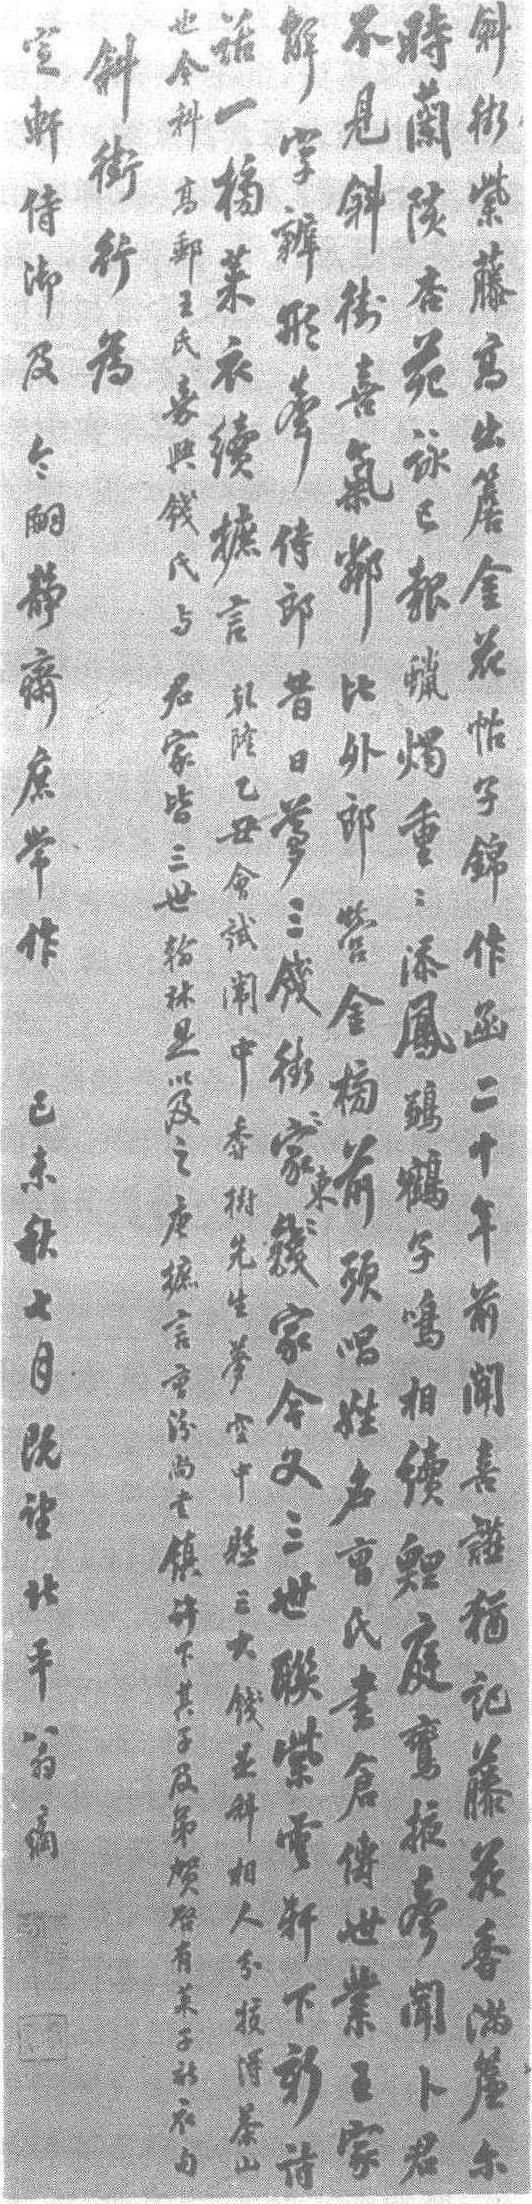 斜街紫藤高出簷金花帖子錦作函二十年前聞喜讌猶記藤花香滿簾尔
時蘭陔杏苑詠已報蠟燭重〻添鳳鷚鶴子鳴相續鯉庭鸞掖夢聞卜君
不見斜街喜氣鄰比外郎營金榜前頭唱姓名曾氏書倉傳世業王家
解字辨形聲侍郎昔日夢三錢街〻東家〻錢家今又三世聯紫雲軒下新詩
話一榜萊衣續摭言 乾隆乙丑會試闈中香樹先生夢空中懸三大錢並斜相人分掖得茶山
也今科高郵王氏嘉興錢氏与 君家皆三世翰林是以及之 唐摭言曹汾尚書鎮許下其子及第賀啓有萊子衣句
斜街行為
定軒侍御及 令嗣靜齋庶常作 己未秋七月既望北平翁方綱